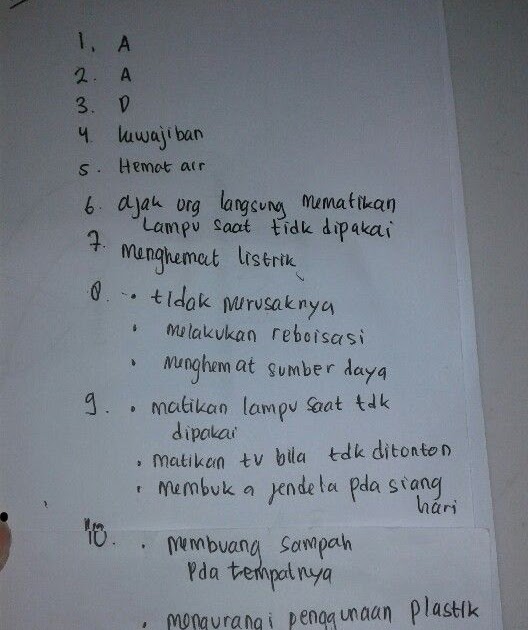 1. A
2. A
3. D
4. kuwajiban
5. Hemat air
6. ajak org langsung mematikan
Lampu saat tidk dipakai
7. Menghemat listrik
8. • tidak merusaknya
• Melakukan reboisasi
• Menghemat sumber daya
9. • matikan lampu saat tdk
dipakai
• matikan tv bila tdk ditonton
• membuka jendela pda siang
hari
10. • Membuang sampah
Pda tempatnya
• mengurangi penggunaan plastik